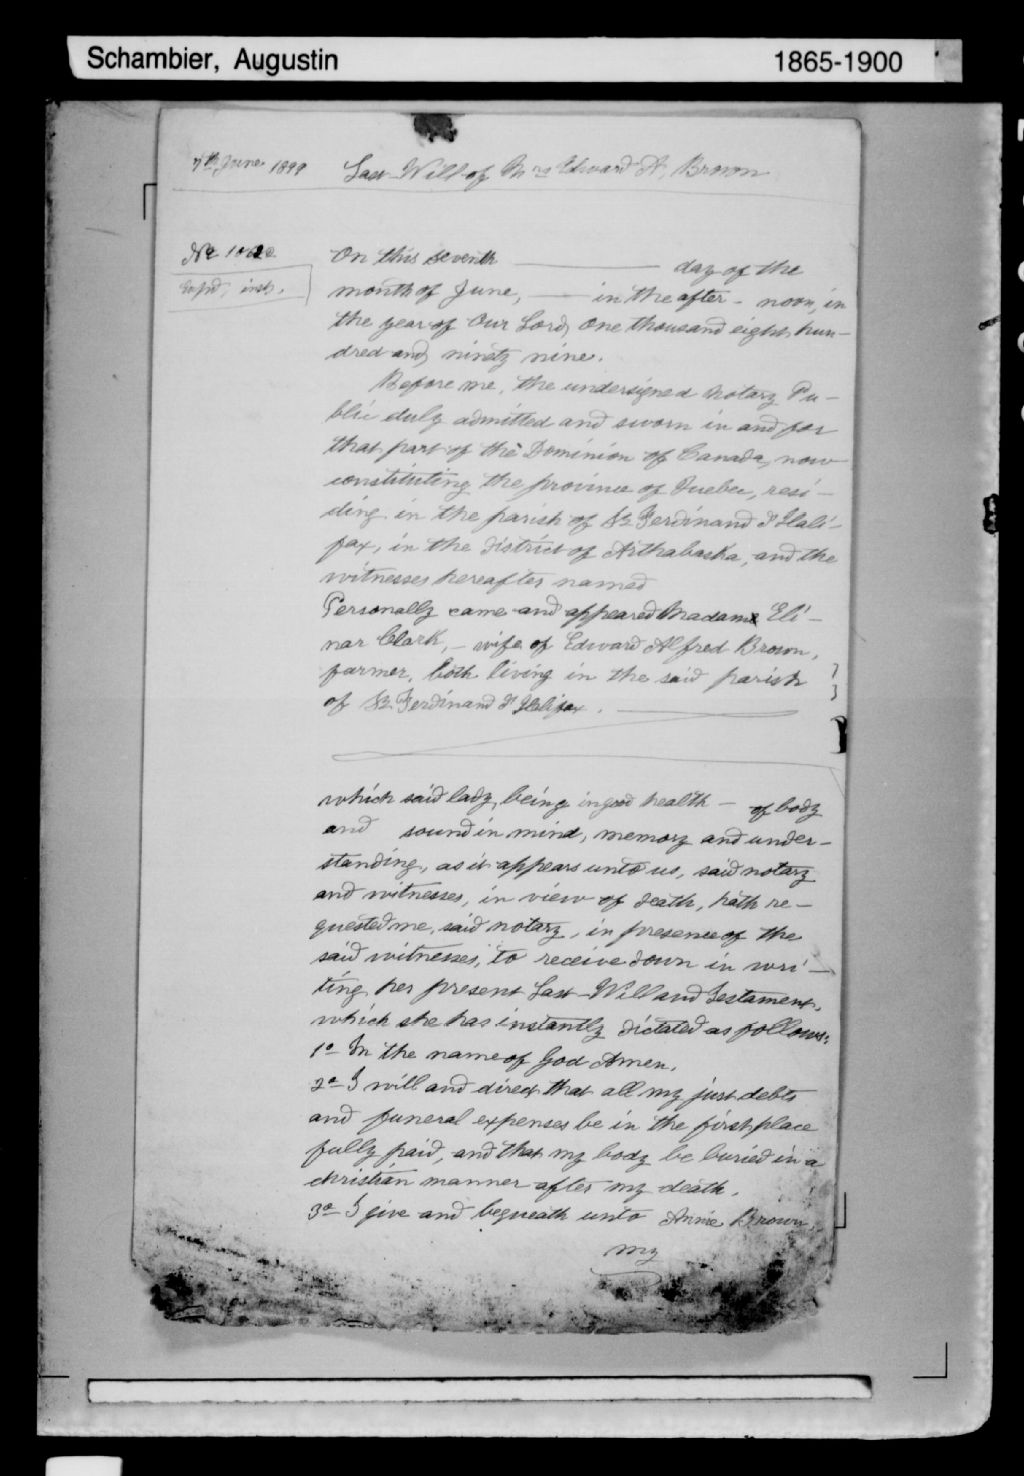 Schambier, Augustin 1865-1900
7th June 1899 Last Will of Mrs Edward A. Brown
No
On this seventh day of the
month of June, in the after-noon, in
the year of Our Lord, One thousand eight hun-
dred and ninety nine.
Before me, the undersigned Notary Pu-
blic duly admitted and sworn in and for
that part of the Dominion of Canada, now
constituting the province of Quebec, resi-
ding in the parish of St Ferdinand d'Hali-
fax, in the district of Arthabaska, and the
witnesses hereafter named
Personally came and appeared Madame Eli-
nar Clark, - wife of Edward Alfred Brown,
farmer, both living in the said parish
of St Ferdinand d'Halifax.
which said lady, being in good health - of body
and sound in mind, memory and under-
standing, as it appears unto us, said notary
and witnesses, in view of death, hath re-
quested me, said notary, in presence of the
said witnesses, to receive down in wri-
ting her present Last Will and Testament,
which she has instantly dictated as follows:
1o In the name of God Amen.
2o I will and direct that all my just debts
and funeral expenses be in the first place
fully paid, and that my body be buried in a
christian manner after my death.
3o I give and bequeath unto Annie Brown,
my